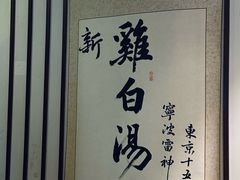 東京十五
寧波雷神
雞白湯
新